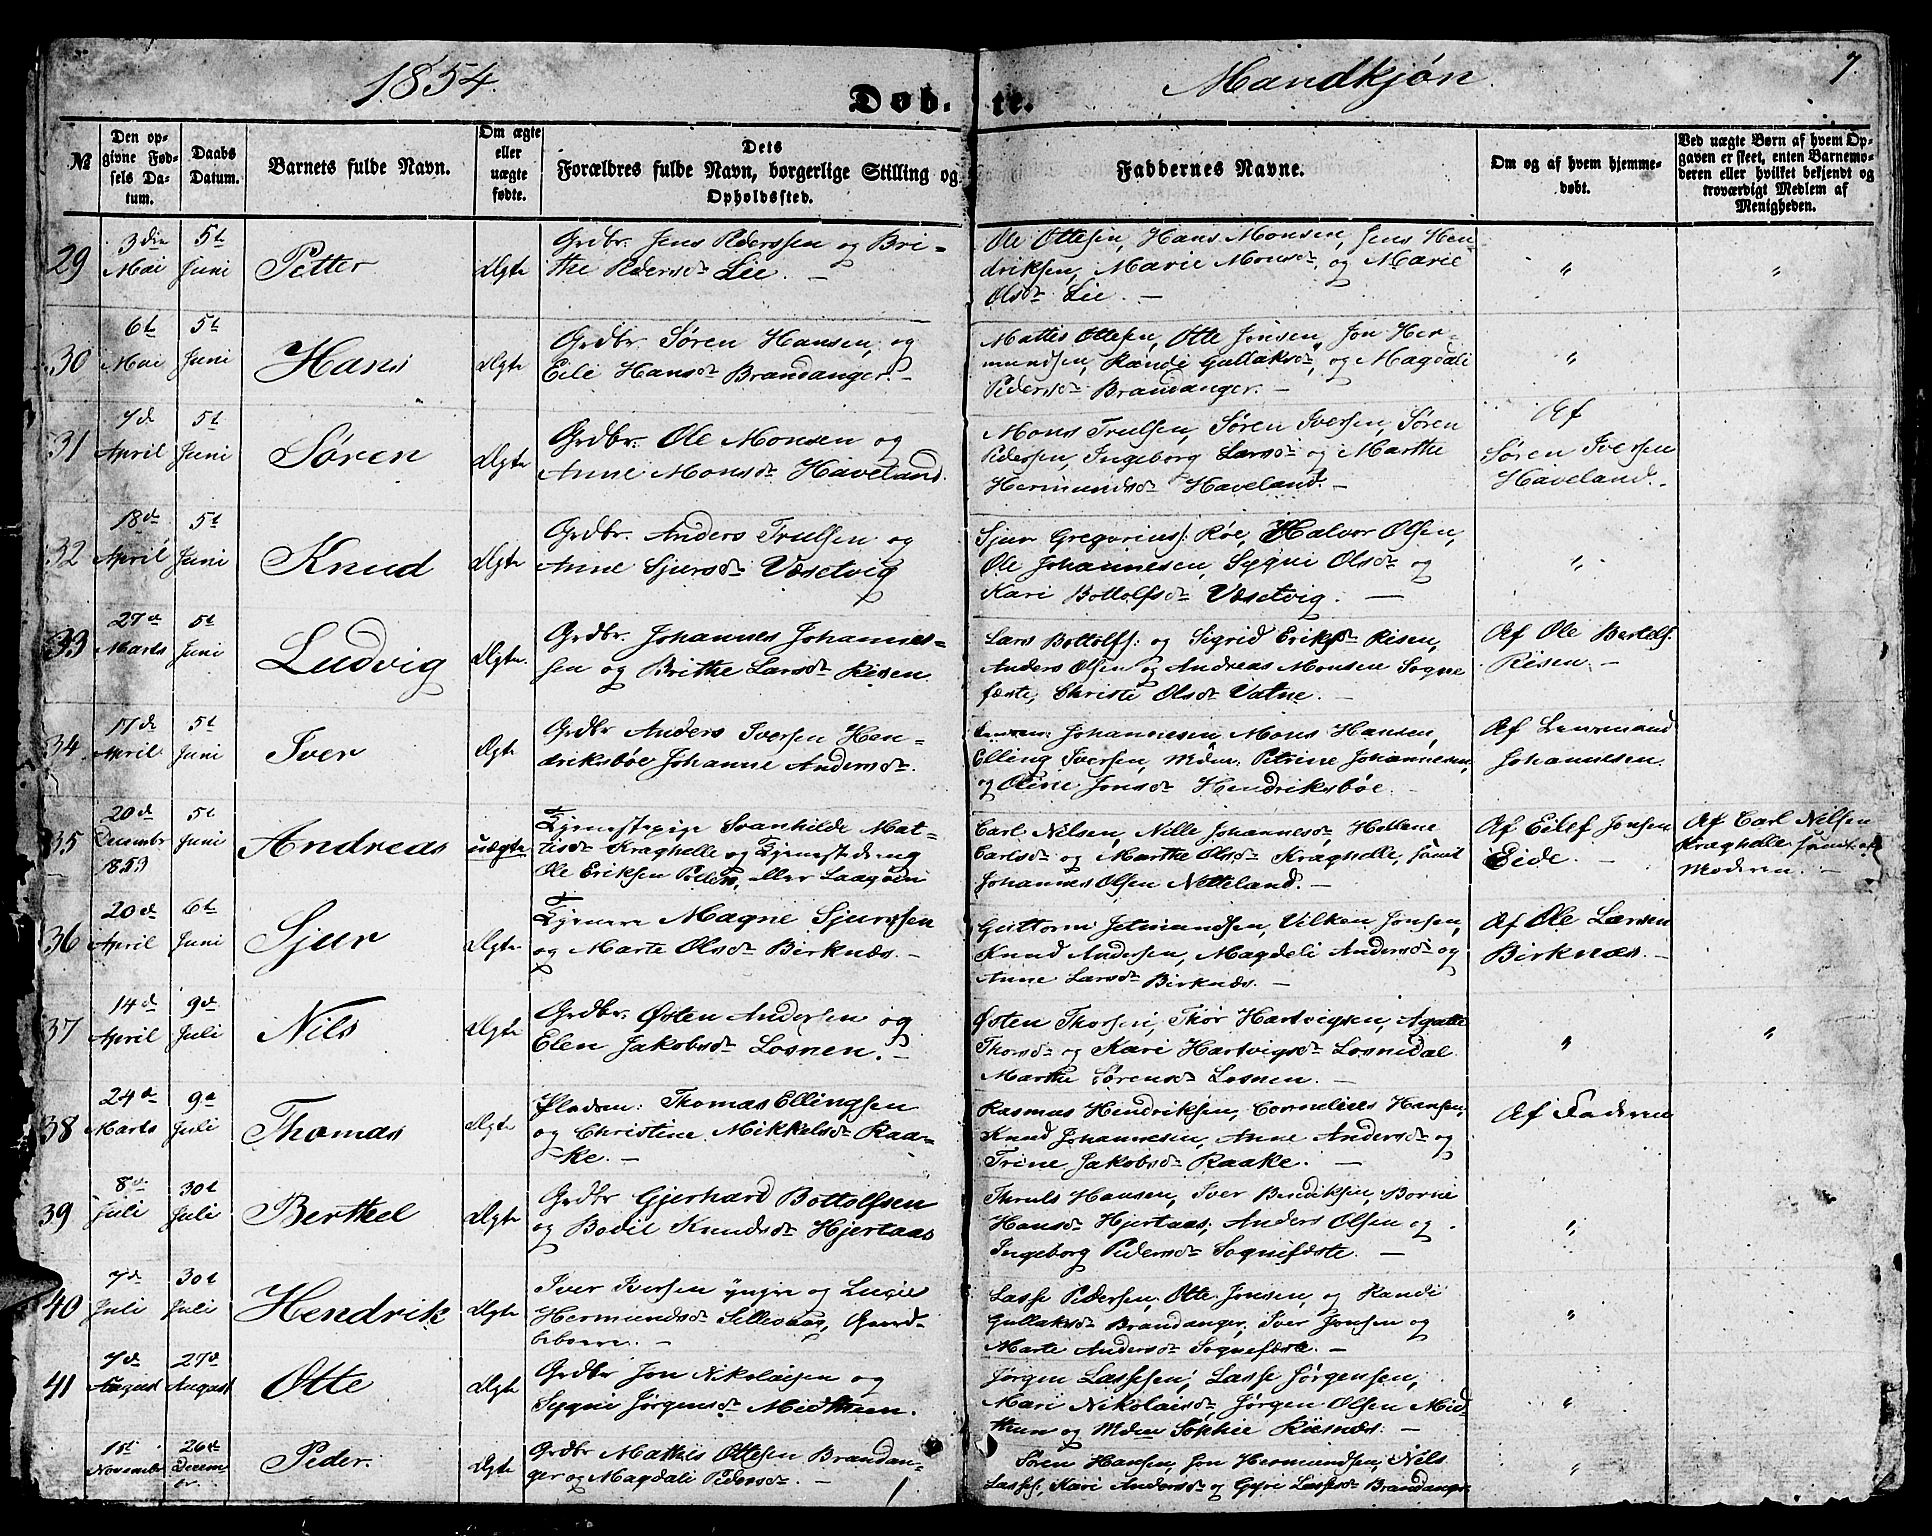 1854.
Døb-te.
Mandkjøn
7.
№
Den op-
givne Fød-
sels Da-
tum.
Daabs
Datum.
Barnets fulde Navn.
Om ægte
eller
uægte
fødte.
Dets
Forældres fulde Navn, borgerlige Stilling og
Opholdssted.
Faddernes Navne.
Om og af hvem hjemme-
døbt.
Ved uægte Børn af hvem Op-
gaven er skeet, enten Barnemo-
deren eller hvilket bekjendt og
troværdigt Medlem af
Menigheden.
29
3die
Mai
5t
Juni
Petter
Ægte
Grdbr. Jens Pederssen og Bri-
the Pedersdr Lie. —
Ole Ottesen, Hans Monsen, Jens Hen-
driksen, Marie Monsdr, og Marie
Olsdr Lie. —
"
"
30
6t
Mai
5t
Juni
Hans
Ægte
Grdbr. Søren Hansen, og
Eili Hansdr Brandanger. —
Mattis Ottesen, Otte Jonsen, Jon Her-
mundsen, Randi Gullaksdr, og Magdali
Pedersdr Brandanger. —
"
31
7d
April
5t
Juni
Søren
Ægte
Grdbr. Ole Monsen og
Anne Monsdr Haveland.
Mons Trulsen, Søren Iversen, Søren
Pedersen, Ingeborg Larsdr og Marthe
Hermundsdr Haveland. —
Af
Søren Iversen
Haveland.
32
18d
April
5t
Juni
Knud
Ægte
Grdbr. Anders Trulsen og
Anne Sjursdr Væsetvig
Sjur Gregoriuss: Røe, Halvor Olsen,
Ole Johannesen, Sygni Olsdr og
Kari Bottolfsdr Væsetvig. —
"
33
27d
Marts
5t
Juni
Ludvig
Ægte.
Grdbr. Johannes Johannes-
sen og Brithe Larsdr Risen.
Lars Bottolfs: og Sigrid Eriksdr Risen,
Anders Olsen og Andreas Monsen Sogne
fæste, Christi Olsdr Vatne. —
Af Ole Bertels:
Risen. —
34
17d
April
5t
Juni
Iver
Ægte
Grdbr Anders Iversen Hen-
driksbøe Johanne Andersdr.
Johannesen, Mons Hansen,
Elling Iversen, Mdm: Petrine Johannesen,
og Oline Jonsdr Hendriksbøe. —
Af Lensmand
Johannesen.
35
20d
Decembr
1853
5t
Juni
Andreas
uægte
Tjenestepige Svanhilde Mat-
tisdr Kraghelle og Tjenestedreng
Ole Eriksen
Carl Nilsen, Nille Johannesdr, Hellene
Carlsdr og Marthe Olsdr Kraghelle, samt
Johannes Olsen Netteland. —
Af Eilef Jonsen
Eide. —
Af Carl Nilsen
Kraghelle samt af
Moderen. —
36
20d
April
6t
Juni
Sjur
Ægte
Tjenere Magne Sjurssen
og Marte Olsdr Birknæs. —
Guttorm Jetmundsen, Vilken Jonsen,
Knud Andersen, Magdeli Andersdr og
Anne Larsdr Birknæs. —
Af Ole Larsen
Birknæs. —
37
14d
April
9d
Juli
Nils
Ægte
Grdbr. Østen Andersen og
Elen Jakobsdr Losnen. —
Østen Thorsen, Thor Hartvigsen, Agathe
Thorsdr og Kari Hartvigsdr Losnedal
Marthe Sørensdr Losnen. —
"
"
38
24d
Marts
9d
Juli
Thomas
Ægte
Pladsm: Thomas Ellingsen
og Christine Mikkelsdr Raa-
ke. —
Rasmus Hendriksen, Cornelius Hansen,
Knud Johannesen, Anne Andersdr og
Trine Jakobsdr Raake. —
Af Faderen
39
8d
Juli
30t
Juli
Berthel
Ægte
Grdbr Gjerhard Bottolfsen
og Bodil Knudsdr Hjertaas
Thruls Hansen, Iver Bendiksen, Borni
Hansdr Hjertaas, Anders Olsen og
Ingeborg Pedersdr Sognifæste. —
"
40
7d
Juli
30t
Juli
Hendrik
Ægte
Iver Iversen yngre og Lucie
Hermundsdr Sellevaag, Gaard-
beboere. —
Lasse Pedersen, Otte Jonsen, og Randi
Gullaksdr Brandanger, Iver Jonsen og
Marte Andersdr Sognefæste. —
"
41
7d
August
27d
August
Otte
Ægte
Grdbr Jon Nikolaisen og
Sygni Jørgensdr Midthun.
Jørgen Lassesen, Lasse Jørgensen,
Mari Nikolaisdr, Jørgen Olsen Mid-
thun og Mdm Sophie Riisnæs. —
"
1st
November
26d
Decem
br.
Peder.
Ægte
Grdbr Mathis Ottesen Brandan-
ger og Magdali Pedersdr. —
Søren Hansen, Jon Hermundsen, Nils
Lasses: Kari Andersdr og Gyri Lassesdr Brandanger
"